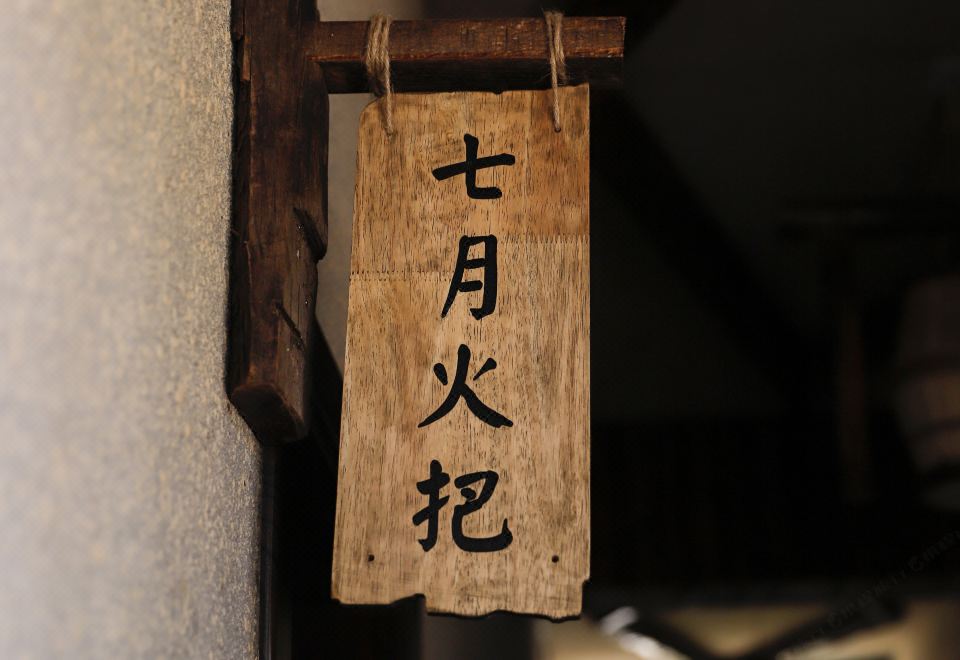 七月火把